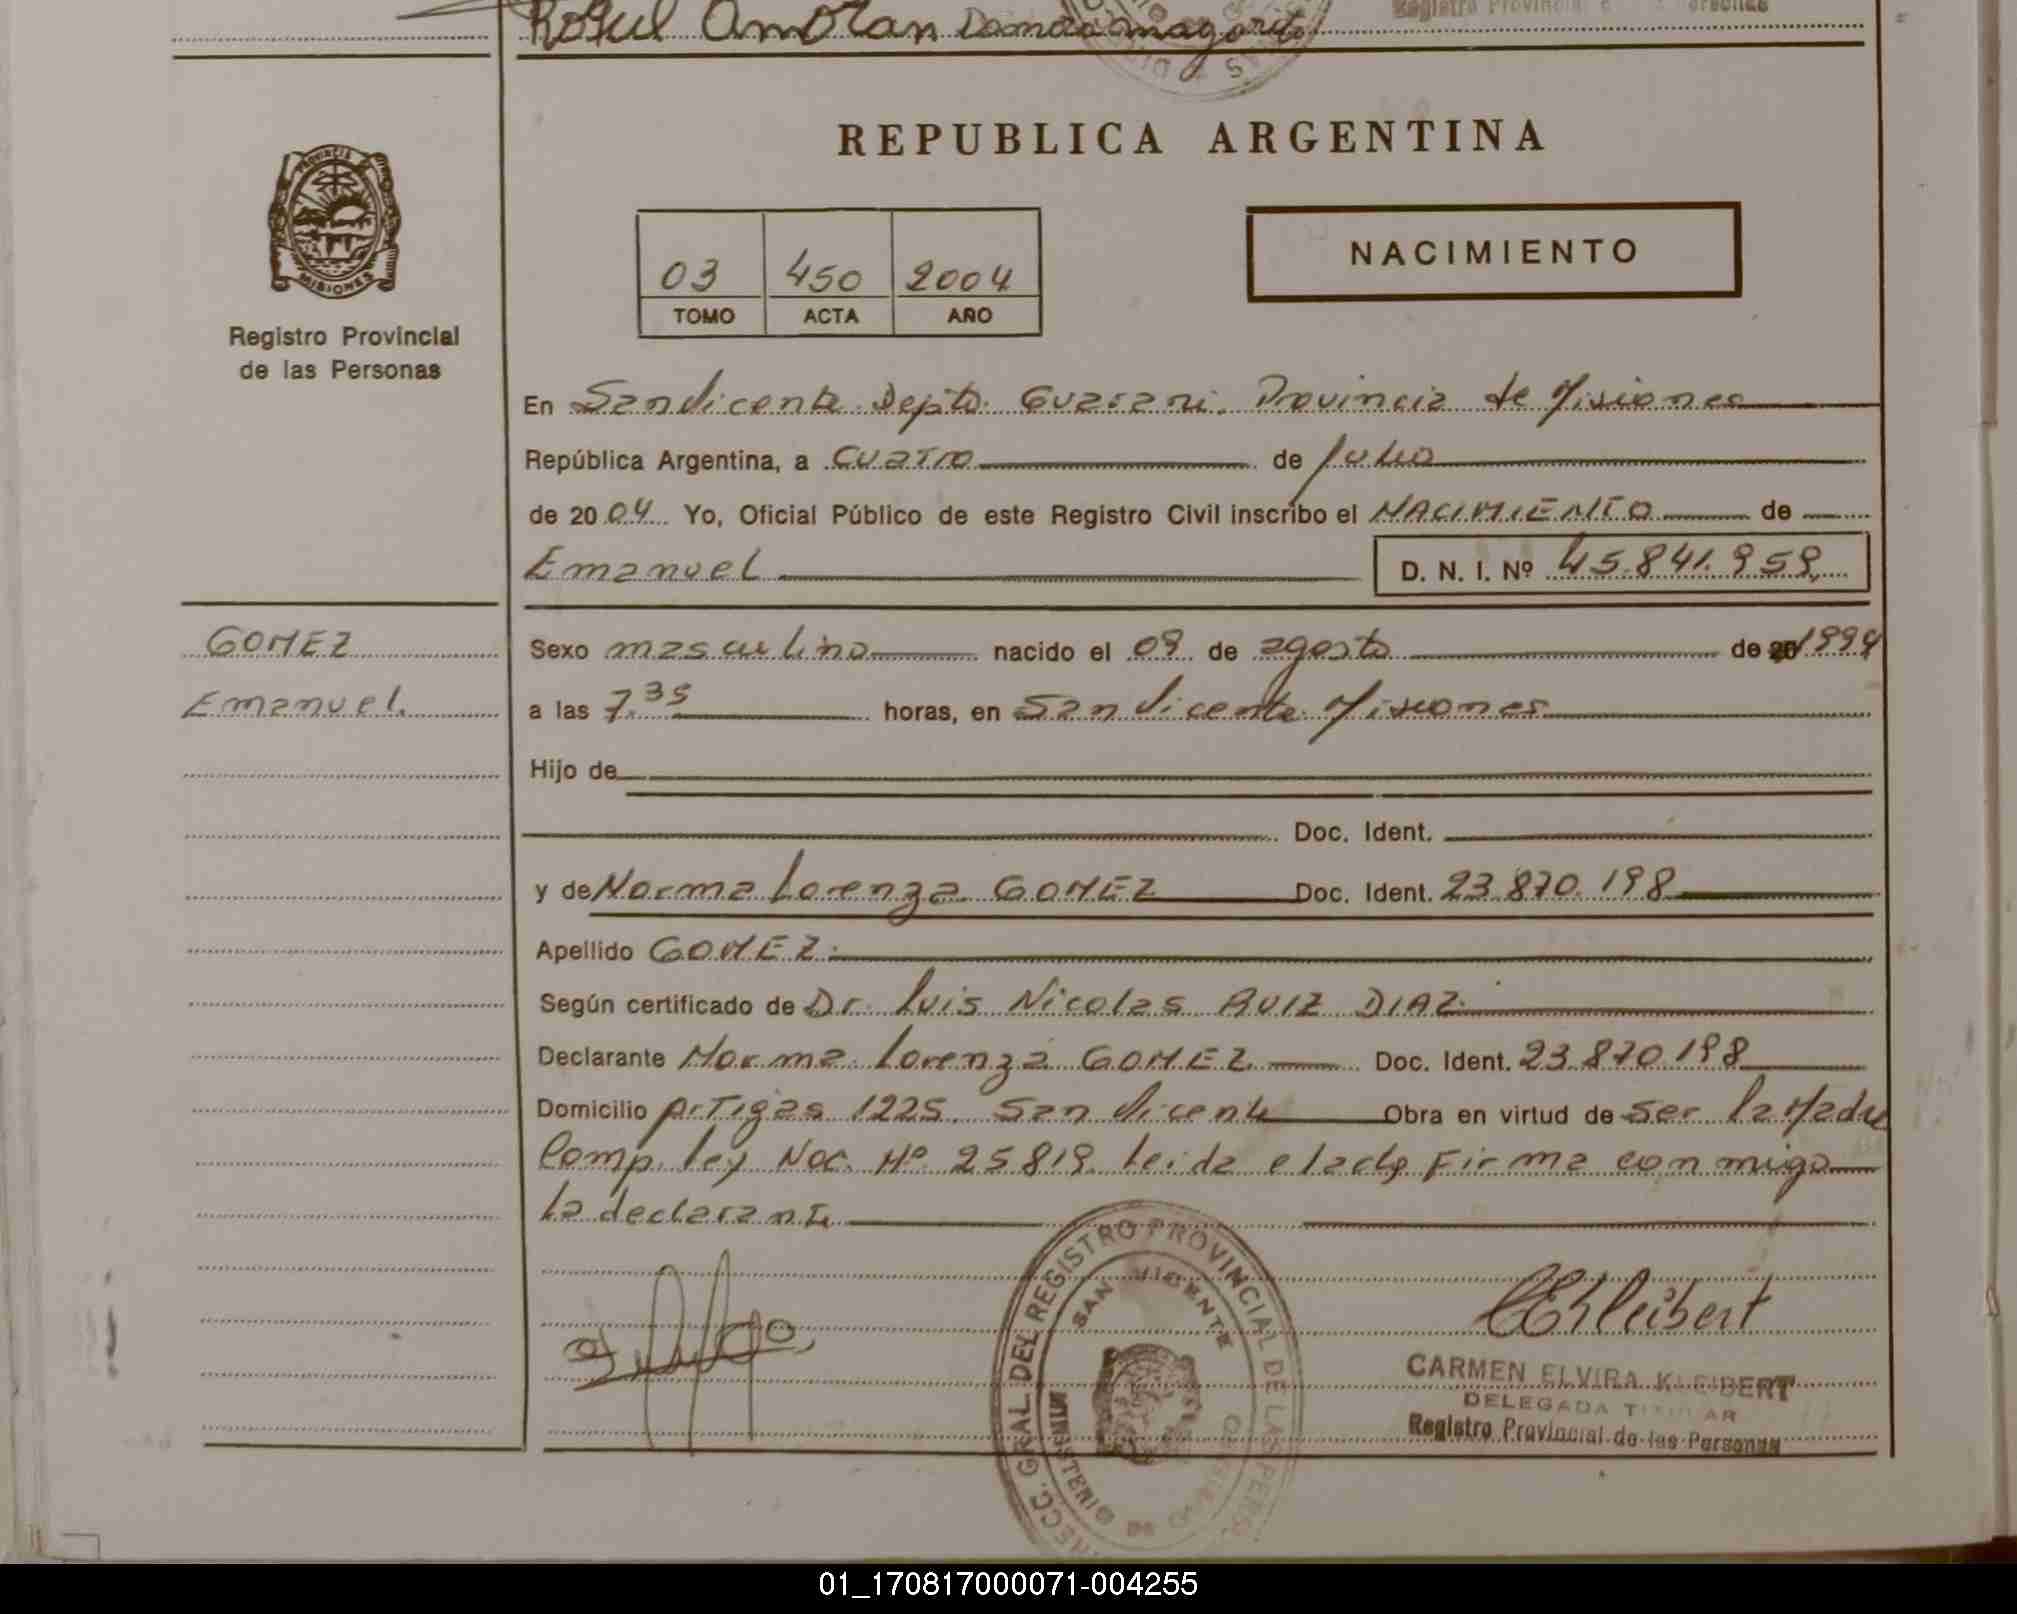 Registro Provincial
REPUBLICA ARGENTINA
PROVINCIA DE
MISIONES
Registro Provincial
de las Personas
03 450 2004
TOMO ACTA AÑO
NACIMIENTO
En San Vicente Depto. Guarani, Provincia de Misiones
República Argentina, a cuatro de Julio
de 2004 Yo, Oficial Público de este Registro Civil inscribo el NACIMIENTO de
Emanuel D. N. I. Nº 45.841.959
GOMEZ
Emanuel.
Sexo masculino nacido el 09 de agosto de 20 1994
a las 7.35 horas, en San Vicente Misiones
Hijo de
Doc. Ident.
y de Norma Lorenza GOMEZ Doc. Ident. 23.870.198
Apellido GOMEZ.
Según certificado de Dr. Luis Nicolas RUIZ DIAZ.
Declarante Norma Lorenza GOMEZ Doc. Ident. 23.870.198
Domicilio Artigas 1225. San Vicente Obra en virtud de ser la Madre
Comp. ley Nac. Nº 25819 Leida el acta Firma conmigo
la declarante
DIRECC. GRAL. DEL REGISTRO PROVINCIAL DE LAS PERS.
SAN VICENTE
MINISTERIO DE
CEKleibert
CARMEN ELVIRA KLEIBERT
DELEGADA TITULAR
Registro Provincial de las Personas
01_170817000071-004255